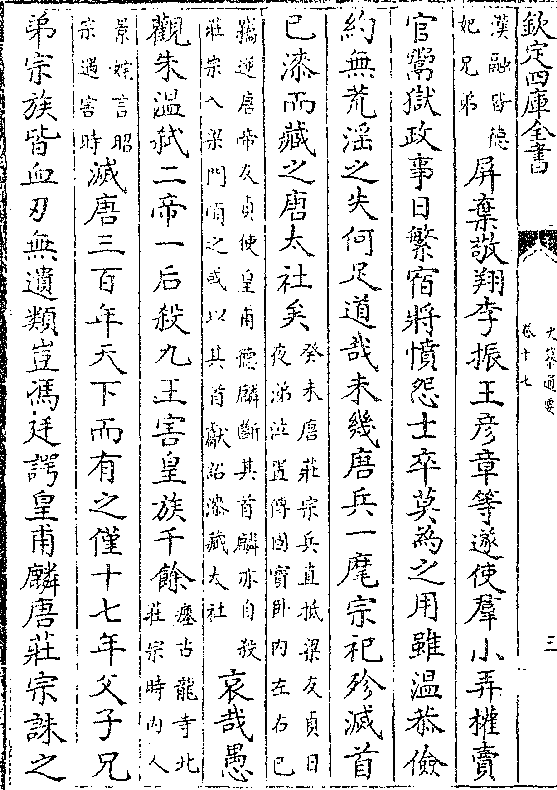 欽定四庫全書
史纂通要
卷十七
三
漢融皆德
妃兄弟
屏棄敬翔李振王彥章等遂使羣小弄權賣
官鬻獄政事日繁宿將憤怨士卒莫為之用雖温恭儉
約無荒淫之失何足道哉未幾唐兵一麾宗祀殄滅首
已漆而藏之唐太社矣
癸未唐莊宗兵直抵梁友貞日
夜涕泣置傳國寶卧内左右已
竊逆唐帝友貞使皇甫德麟斷其首麟亦自殺
莊宗入梁門頃之或以其首獻詔漆藏太社
哀哉愚
觀朱温弑二帝一后殺九王害皇族千餘
瘞古龍寺北
莊宗時内人
景姹言昭
宗遇害時
滅唐三百年天下而有之僅十七年父子兄
弟宗族皆血刃無遺類豈馮廷諤皇甫麟唐莊宗誅之